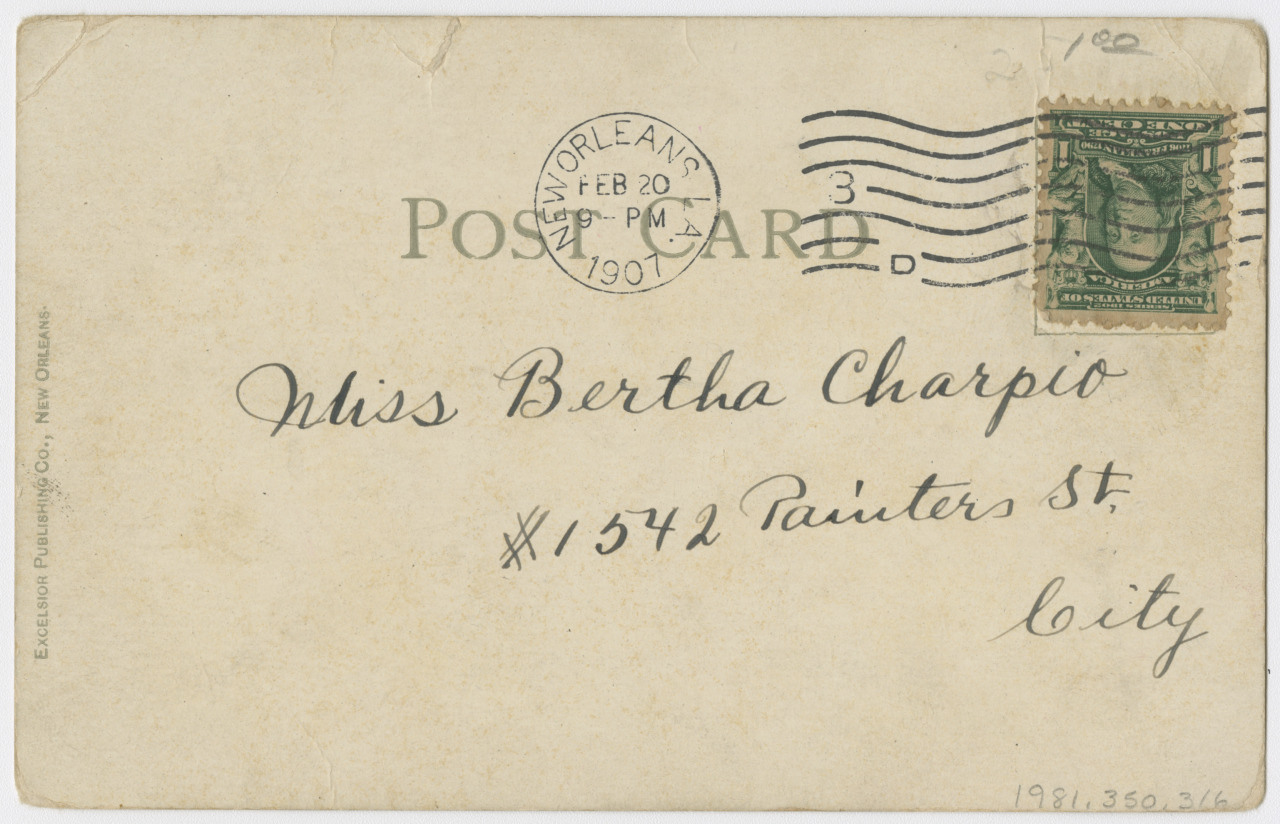 1 00
NEW ORLEANS, LA.
FEB 20
9 - PM
1907
3
D
POST CARD
SERIES 1902
UNITED STATES OF
AMERICA
1 1
POSTAGE
ONE CENT
Miss Bertha Charpio
#1542 Painters St.
City
EXCELSIOR PUBLISHING CO., NEW ORLEANS.
1981.350.316